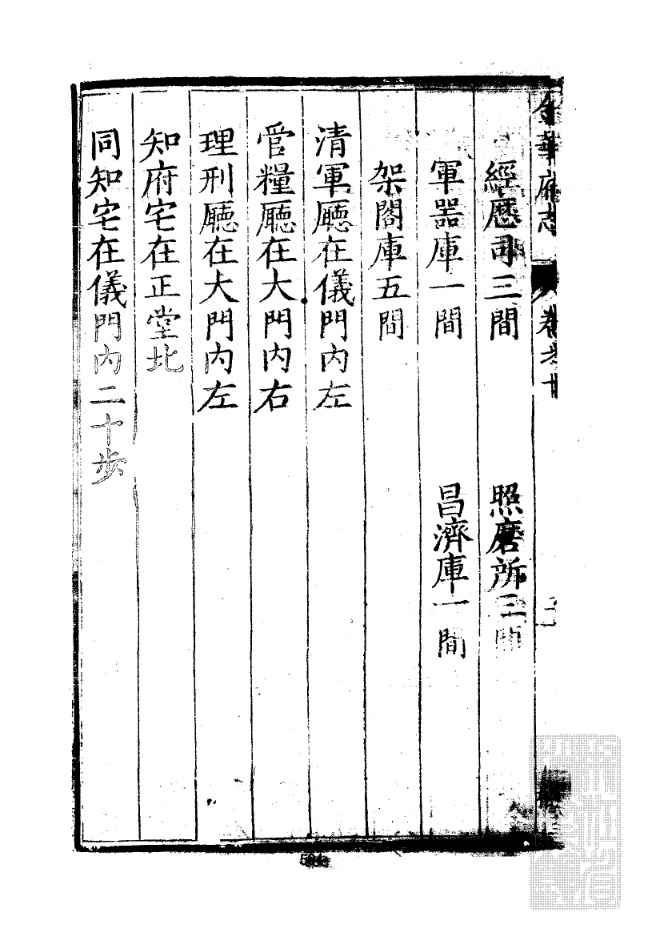 經歷司三間 照磨所三間
軍器庫一間 昌濟庫一間
架閣庫五間
清軍廳在儀門內左
管糧廳在大門內右
理刑廳在大門內左
知府宅在正堂北
同知宅在儀門內二十步
金華府志 卷之十